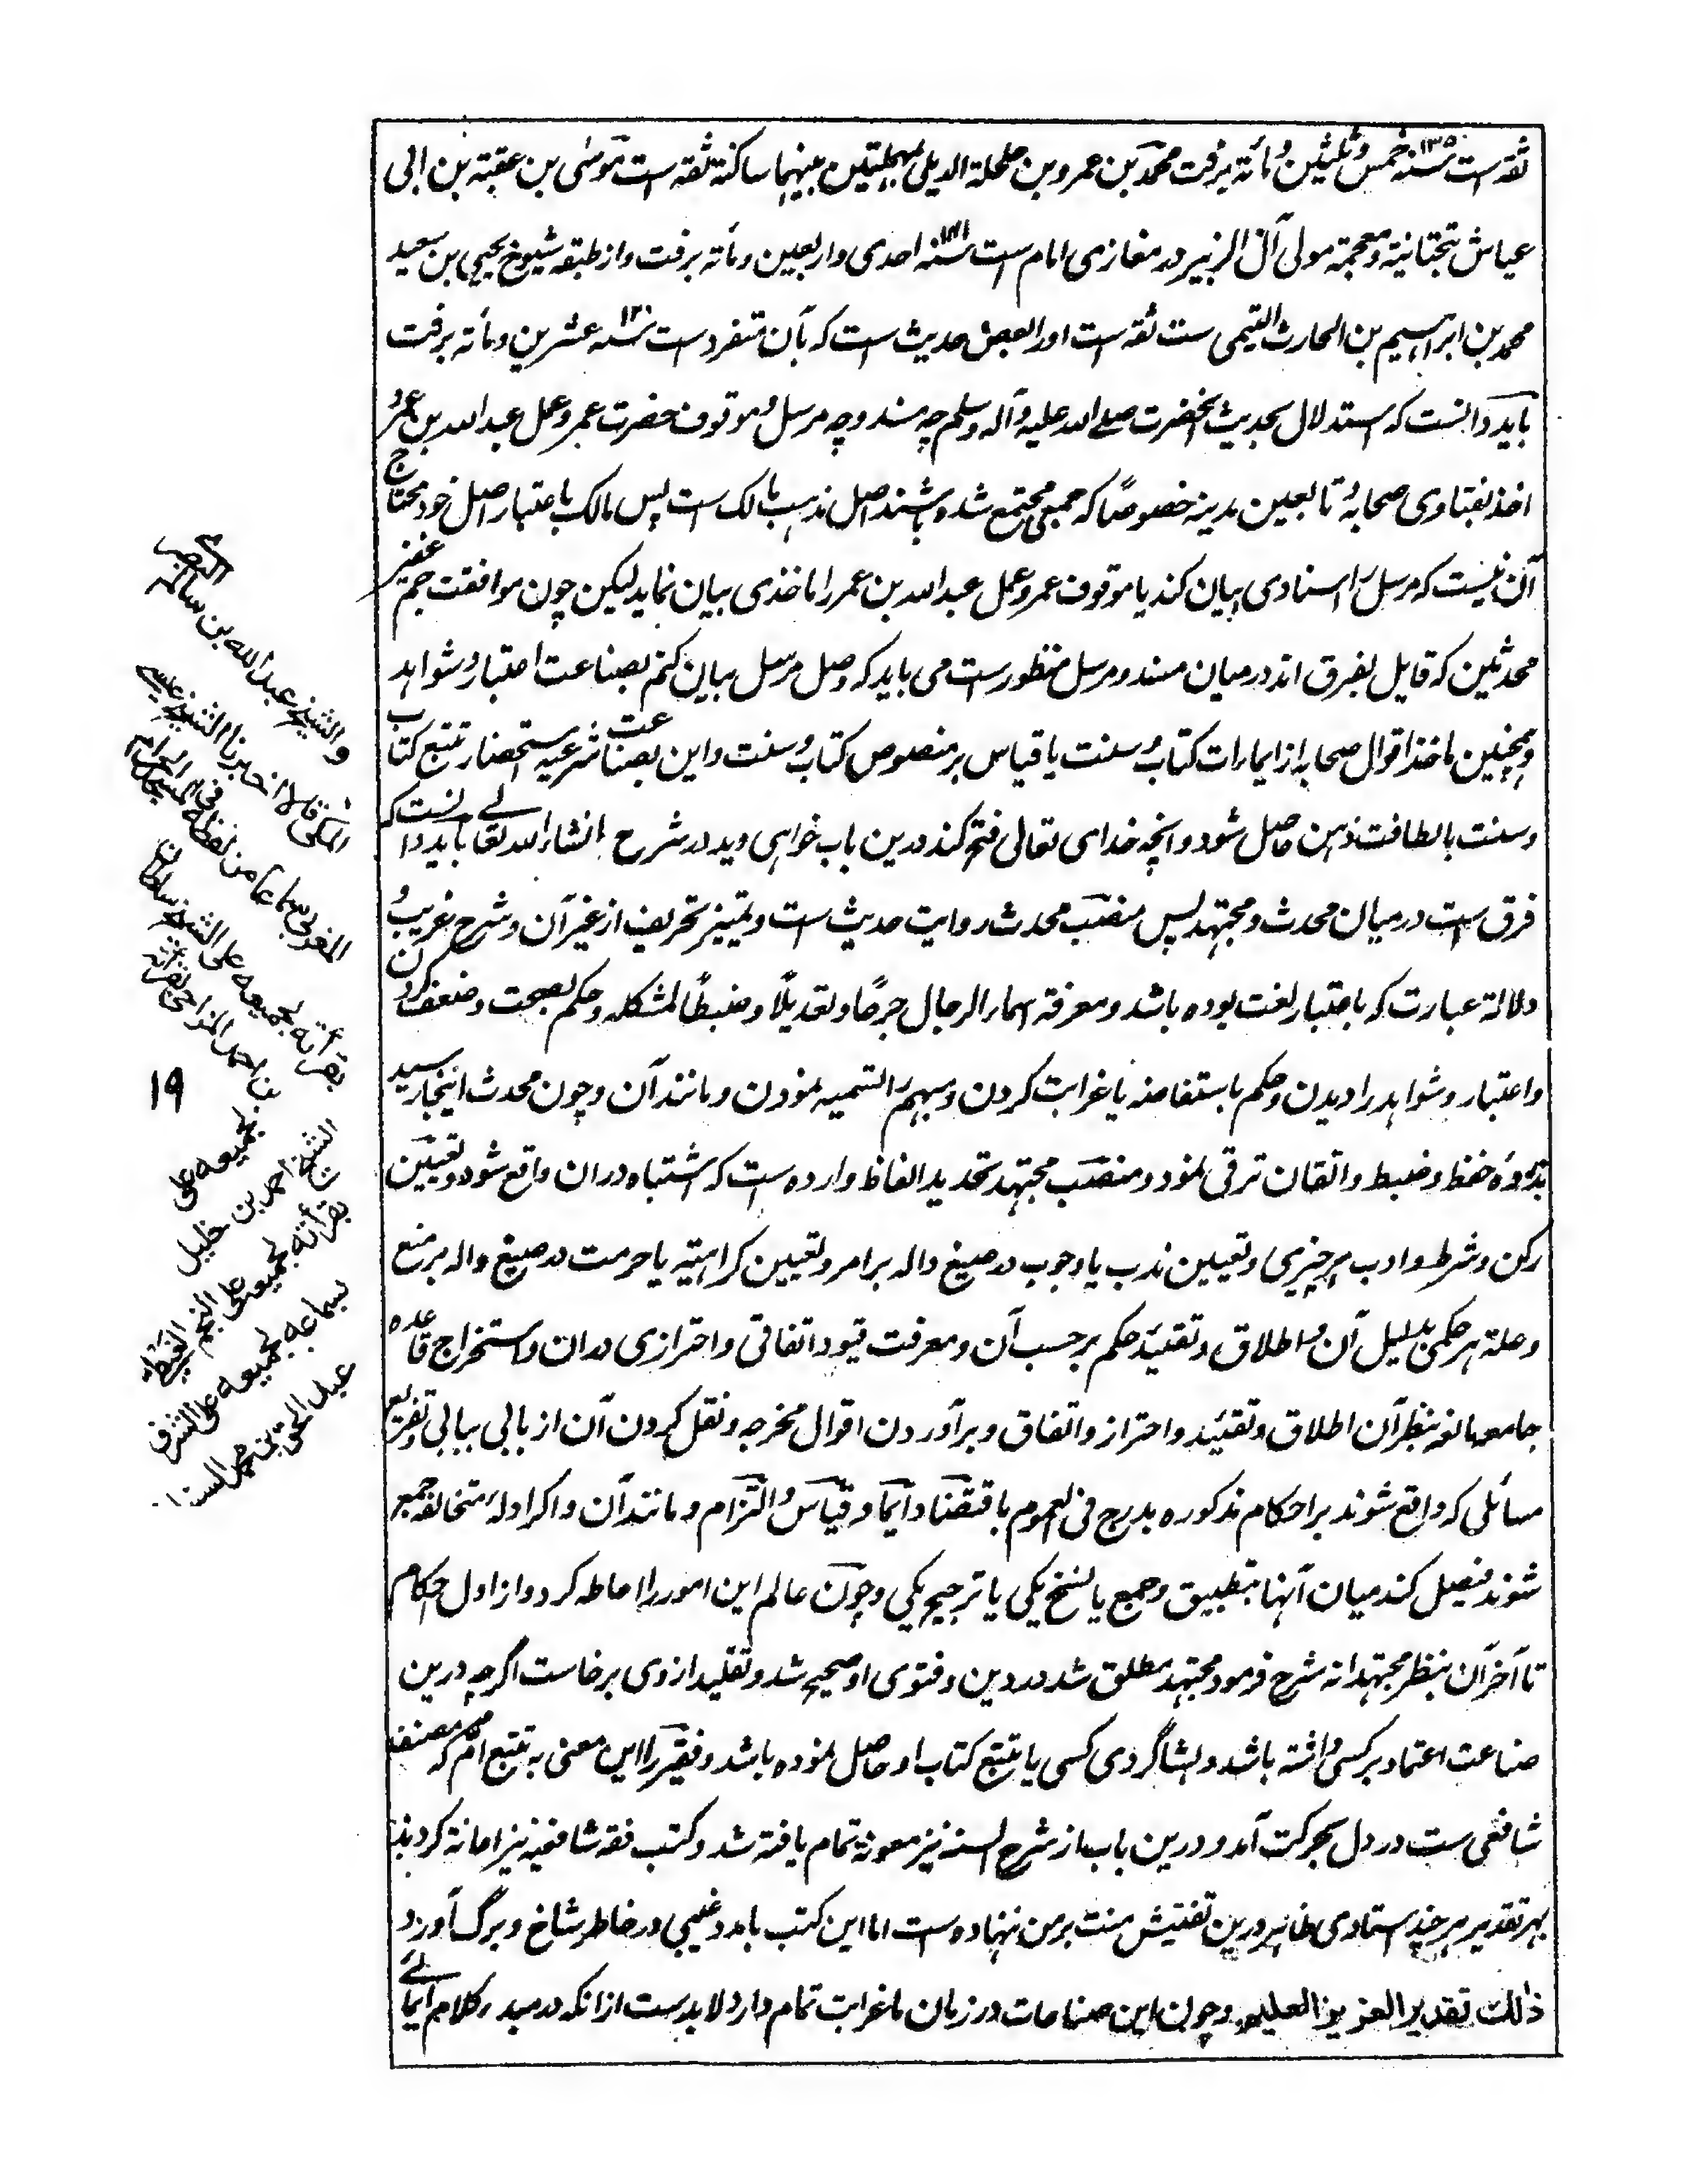 ثقه است ۱۳۵ سنه خمس و ثلثین و مأته برفت محمد بن عمرو بن حلحلة الدیلی بمهملتین بینهما ساکنة ثقه است موسی بن عقبة بن ابی
عیاش بتحتانیة و معجمة مولی آل الزبیر در مغازی امام است ۱۴۱ سنه احدی و اربعین و مأته برفت و از طبقه شیوخ یحیی بن سعید
محمد بن ابراهیم بن الحارث التیمی ست ثقه است او را بعض حدیث است که بآن متفرد است ۱۲۰ سنه عشرین و مأته برفت
باید دانست که استدلال بحدیث آنحضرت صلے الله علیه و آله و سلم چه مسند و چه مرسل و موقوف حضرت عمر و عمل عبد الله بن عمر و
اخذ بفتاوی صحابه و تابعین مدینه خصوصاً که جمعی مجتمع شده باشند اصل مذهب مالک است پس مالک باعتبار اصل خود محتاج
آن نیست که مرسل را اسنادی بیان کند یا موقوف عمر و عمل عبد الله بن عمر را ماخذی بیان نماید لیکن چون موافقت جم غفیر
محدثین که قایل بفرق اند درمیان مسند و مرسل منظور ست می باید که وصل مرسل بیان کنم بصناعت اعتبار و شواهد
و همچنین ماخذ اقوال صحابه از ایمارات کتاب و سنت یا قیاس بر منصوص کتاب و سنت و این بصناعت شرعیه استحضار تتبع کتاب
و سنت بالطافت ذهن حاصل شود و آنچه خدای تعالی فتح کند درین باب خواهی دید در شرح انشاء الله تعالے باید دانست که
فرق است درمیان محدث و مجتهد پس منصب محدث روایت حدیث ست و تمییز تحریف از غیر آن و شرح غریب و
دلالة عبارت که باعتبار لغت بوده باشد و معرفة اسماء الرجال جرحًا و تعدیلًا و ضبطًا لمشکله و حکم بصحت و ضعف کردن
و اعتبار و شواهد را دیدن و حکم باستفاضه یا غرابت کردن و مبهم را تسمیه نمودن و مانند آن و چون محدث اینجا رسید
بذروۀ حفظ و ضبط و اتقان ترقی نمود و منصب مجتهد تحدید الفاظ وارده ست که اشتباه دران واقع شود و تعیین
رکن و شرط و ادب هر چیزی و تعیین ندب یا وجوب در صیغ داله بر امر و تعیین کراهیته یا حرمت در صیغ داله بر منع
و علة هر حکمی بدلیل آن و اطلاق و تقئید حکم بر حسب آن و معرفت قیود اتفاقی و احترازی دران و استخراج قاعده
جامعه مانعه بنظر آن اطلاق و تقئید و احتراز و اتفاق و برآوردن اقوال مخرجه و نقل کردن آن از بابی ببابی و تفریع
مسائلی که واقع شوند بر احکام مذکوره بدرج فی العموم باقتضا و ایما و قیاس و التزام و مانند آن و اگر ادلۀ متخالفه جمع
شوند فیصل کند میان آنها بتطبیق و جمع یا نسخ یکی یا ترجیح یکی و چون عالم این امور را احاطه کرد و از اول احکام
تا آخر آن بنظر مجتهدانه شرح فرمود مجتهد مطلق شد در دین و فتوی او صحیح شد و تقلید از وی برخاست اگرچه درین
صناعت اعتماد بر کسی داشته باشد و بشاگردی کسی یا تتبع کتاب او حاصل نموده باشد و فقیر را این معنی به تتبع ام که مصنفه
شافعی ست در دل بحرکت آمد و درین باب از شرح السنه نیز معونة تمام یافته شد و کتب فقه شافعیه نیز اعانة کردند
بهر تقدیر هر چند استادی ظاهر درین تفتیش منت بر من ننهاده ست اما این کتب بامدد غیبی در خاطر شاخ و برگ آورد
ذٰلك تقدیر العزیز العلیم و چون این صناعات در زمان ما غرابت تمام دارد لابدست از آنکه در مبدء کلام ایمائے
البصری
والشیخ عبد الله بن سالم
المکی قالا اخبرنا الشیخ عیسے
المغربی سماعا من لفظه فی المسجد الحرام
بقرأته لجمیعه علی الشیخ سلطان
بن احمد المزاحی بقرأته
لجمیعه علی
الشیخ احمد بن خلیل
بقرأته لجمیعه علی النجم الغیطی
بسماعه لجمیعه علی الشرف
عبد الحق بن محمد السنباطی
۱۹